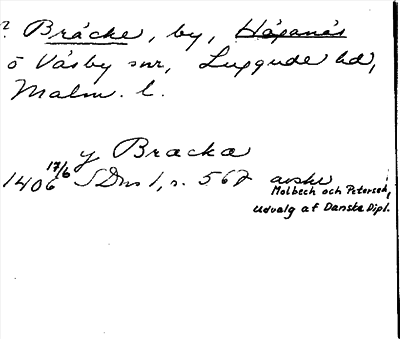 ? Bräcke, by, Höganäs
ö Väsby snr, Luggude hd,
Malm. l.
y Bracka
1406 17/6 SDns 1, s. 567 avskr
Molbech och Petersen,
Udvalg af Danske Dipl.